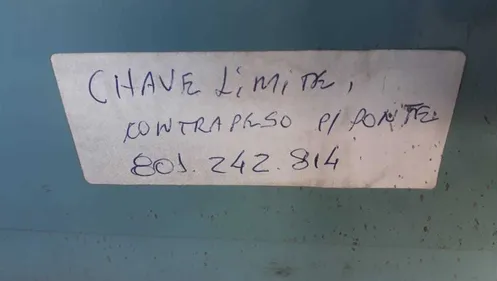 CHAVE LiMiTE,
CONTRAPESO P/ PONTE
801.242.814